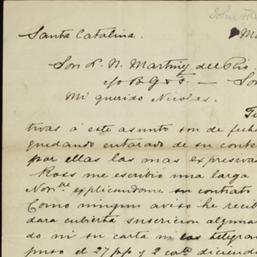 Santa Catalina.
Son P. N. Martinez del Rio
c/o B G & S. —
Mi querido Nicolas.
tivas á este asunto son de fecha
quedando enterado de su conte
por ellas las mas expresivas
Ross me escribio una larga
Nov.re explicandome su contrato
Como ningun aviso he recib
dara cubierta suscricion alguna
do ni su carta ni las telegra
puso el 27 p/p y 2 cort. diciendo